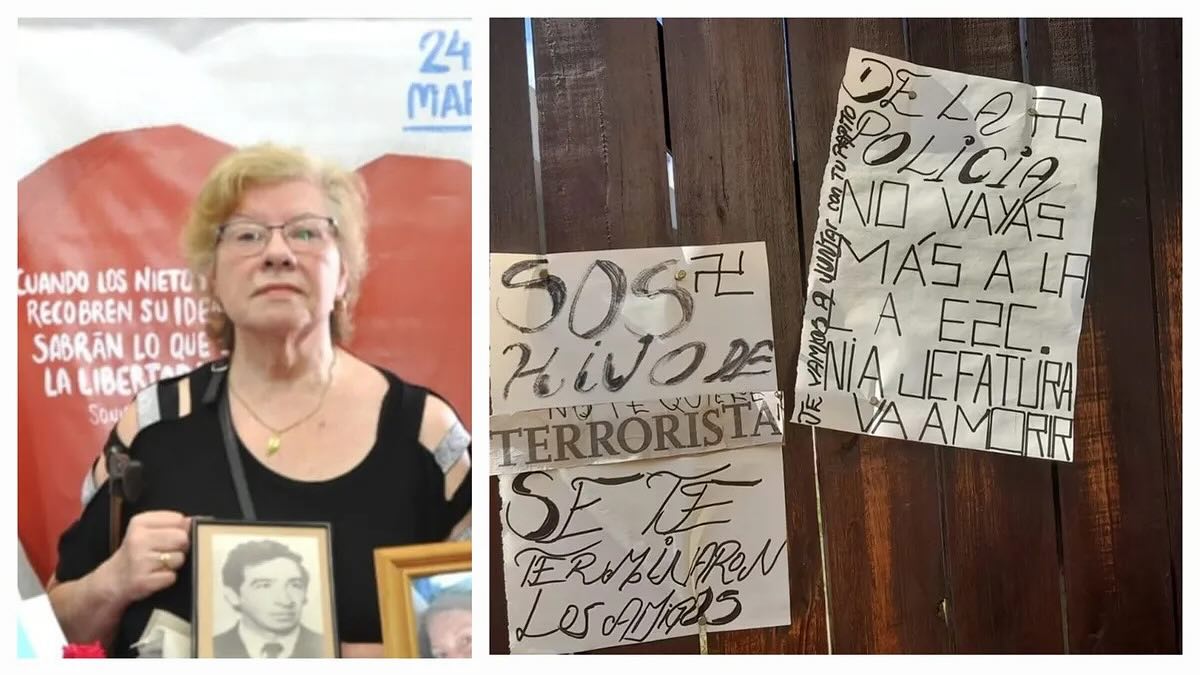 24
MAR
CUANDO LOS NIETO
RECOBREN SU IDE
SABRÁN LO QUE
LA LIBERTA
SOS
HIJO DE
NO TE QUIERE
TERRORISTA
SE TE
TERMINARON
LOS AMIGOS
DE LA
POLICIA
NO VAYAS
MÁS A LA
L A E2C.
NIA JEFATURA
VA A MORIR
TE VAMOS A JUNTAR CON TU PAPITO